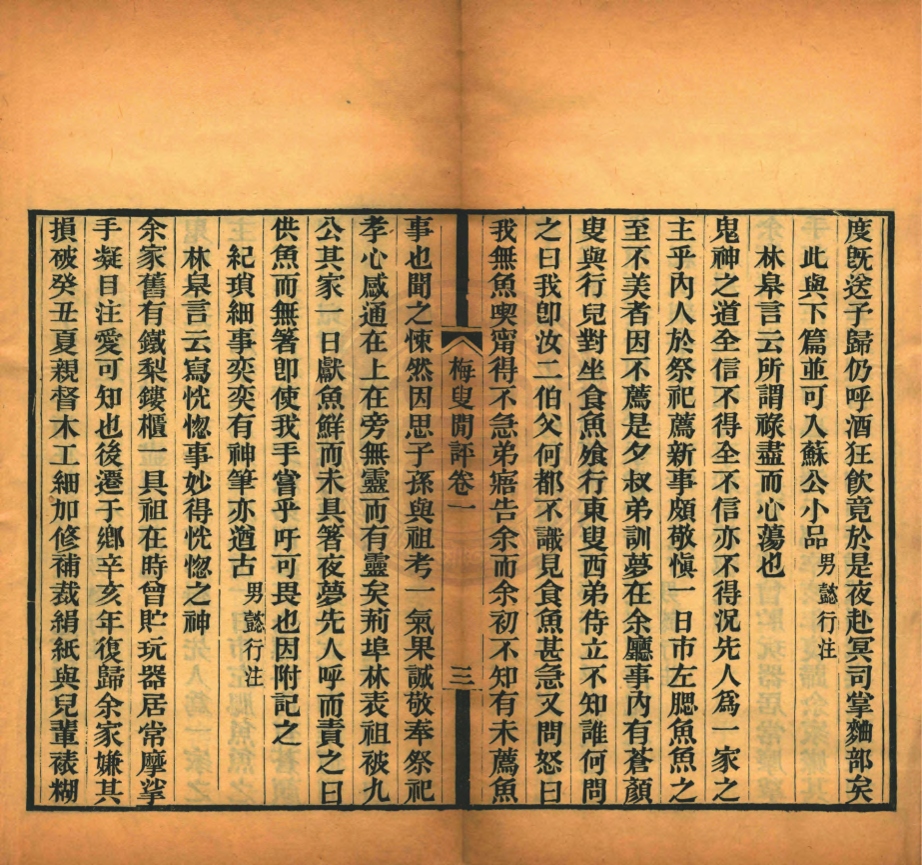 度旣送予歸仍呼酒狂飲竟於是夜赴冥司掌麯部矣
此與下篇並可入蘇公小品男懿行注
林皋言云所謂祿盡而心蕩也
鬼神之道全信不得全不信亦不得況先人爲一家之
主乎內人於祭祀薦新事頗敬愼一日市左腮魚魚之
至不美者因不薦是夕叔弟訓夢在余廳事內有蒼顏
叟與行兒對坐食魚飧行東叟西弟侍立不知誰何問
之曰我卽汝二伯父何都不識見食魚甚急又問怒曰
我無魚喫甯得不急弟寤告余而余初不知有未薦魚
梅叟閒評卷一
三
事也聞之悚然因思子孫與祖考一氣果誠敬奉祭祀
孝心感通在上在旁無靈而有靈矣荊埠林表祖被九
公其家一日獻魚鮮而未具箸夜夢先人呼而責之曰
供魚而無箸卽使我手嘗乎吁可畏也因附記之
紀瑣細事奕奕有神筆亦遒古男懿行注
林皋言云寫恍惚事妙得恍惚之神
余家舊有鐵梨鏤櫃一具祖在時曾貯玩器居常摩挲
手凝目注愛可知也後遷于鄉辛亥年復歸余家嫌其
損破癸丑夏親督木工細加修補裁絹紙與兒輩裱糊